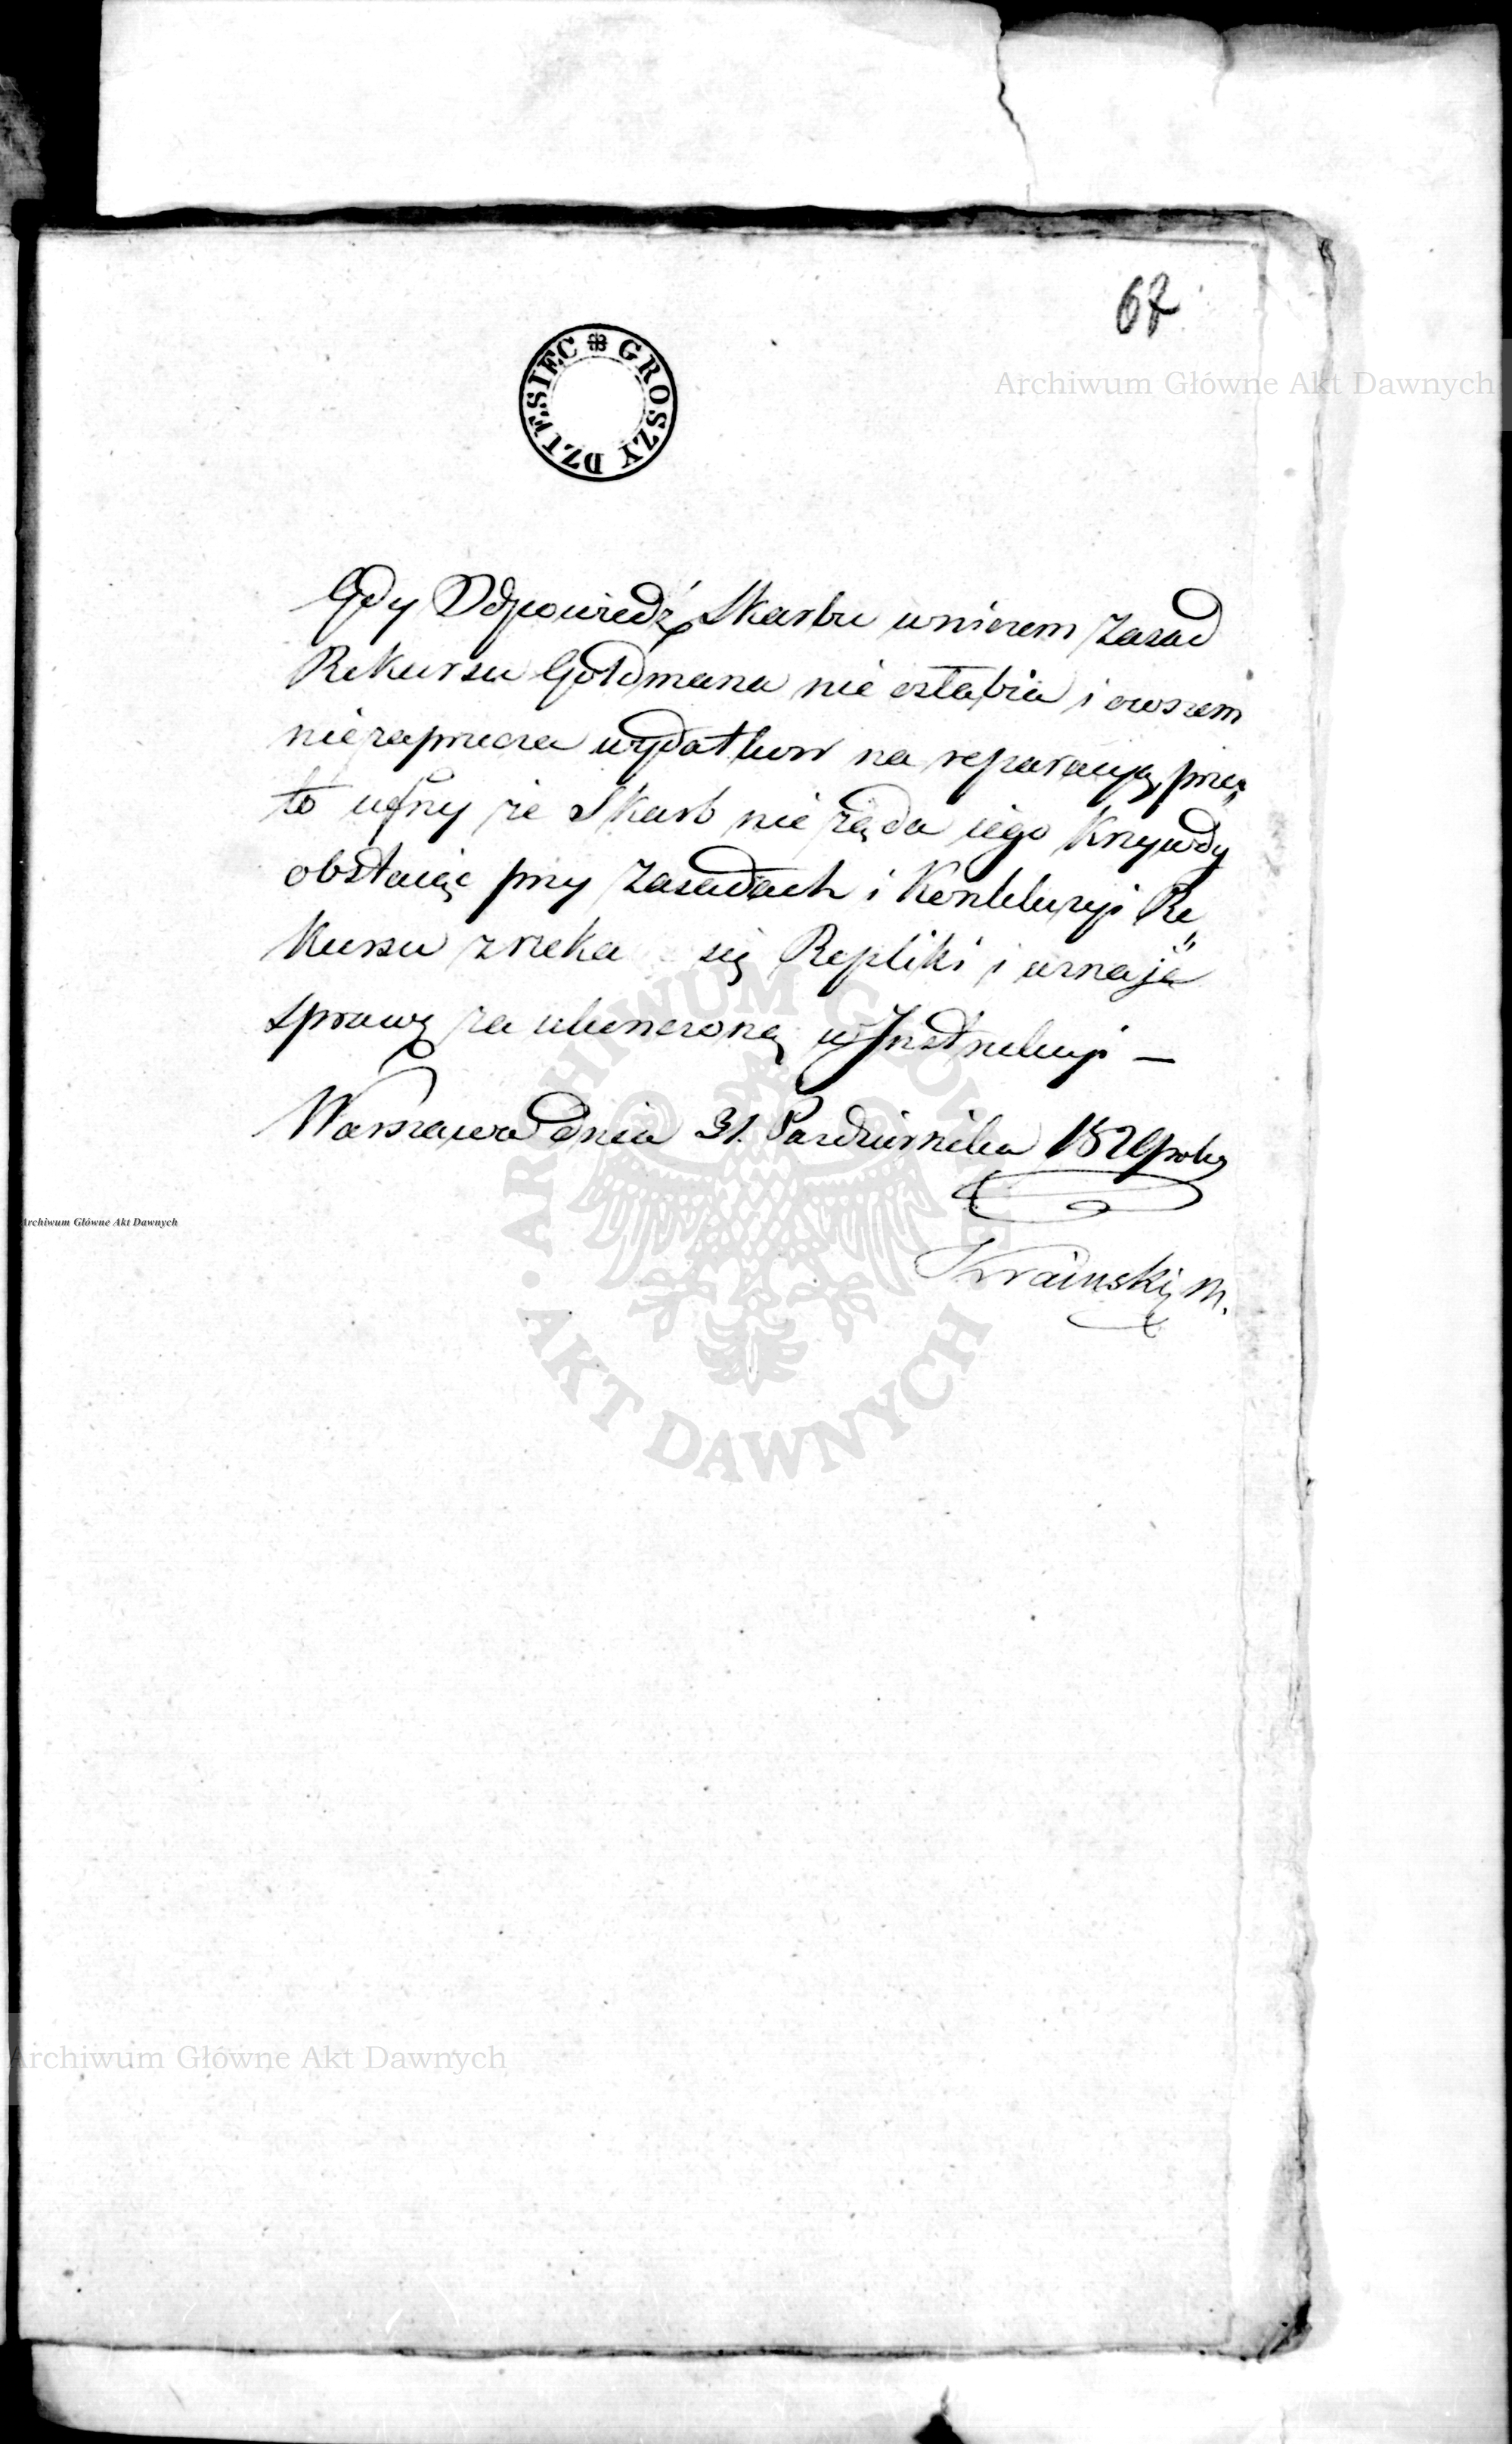 67
Archiwum Główne Akt Dawnych
GROSZY DZIESIEC
Gdy Odpowiedź Skarbu wniczem zasad
Rekursu Goldmana nie osłabia i owszem
niezaprzecza wydatkow na reparacyą, prze„
to ufny że Skarb nie żąda iego Krzywdy
obstaiąc przy zasadach i Konkluzyi Re„
kursu zrzeka się Repliki i uznaje
sprawę za ukonczoną w Instrukcyi —
Warszawa dnia 31. Pazdziernika roku
Kraiński M.
ARCHIWUM GŁÓWNE AKT DAWNYCH
Archiwum Główne Akt Dawnych
Archiwum Główne Akt Dawnych